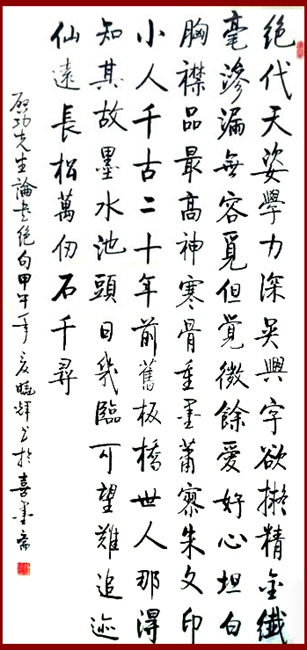 絕代天姿學力深吳興字欲擬精金纖
毫滲漏無容覓但覺微餘愛好心坦白
胸襟品最高神寒骨重墨蕭寥朱文印
小人千古二十年前舊板橋世人那得
知其故墨水池頭日幾臨可望難追迹
仙遠長松萬仞石千尋
啟功先生論書絕句甲午年夏曉輝書於喜墨齋